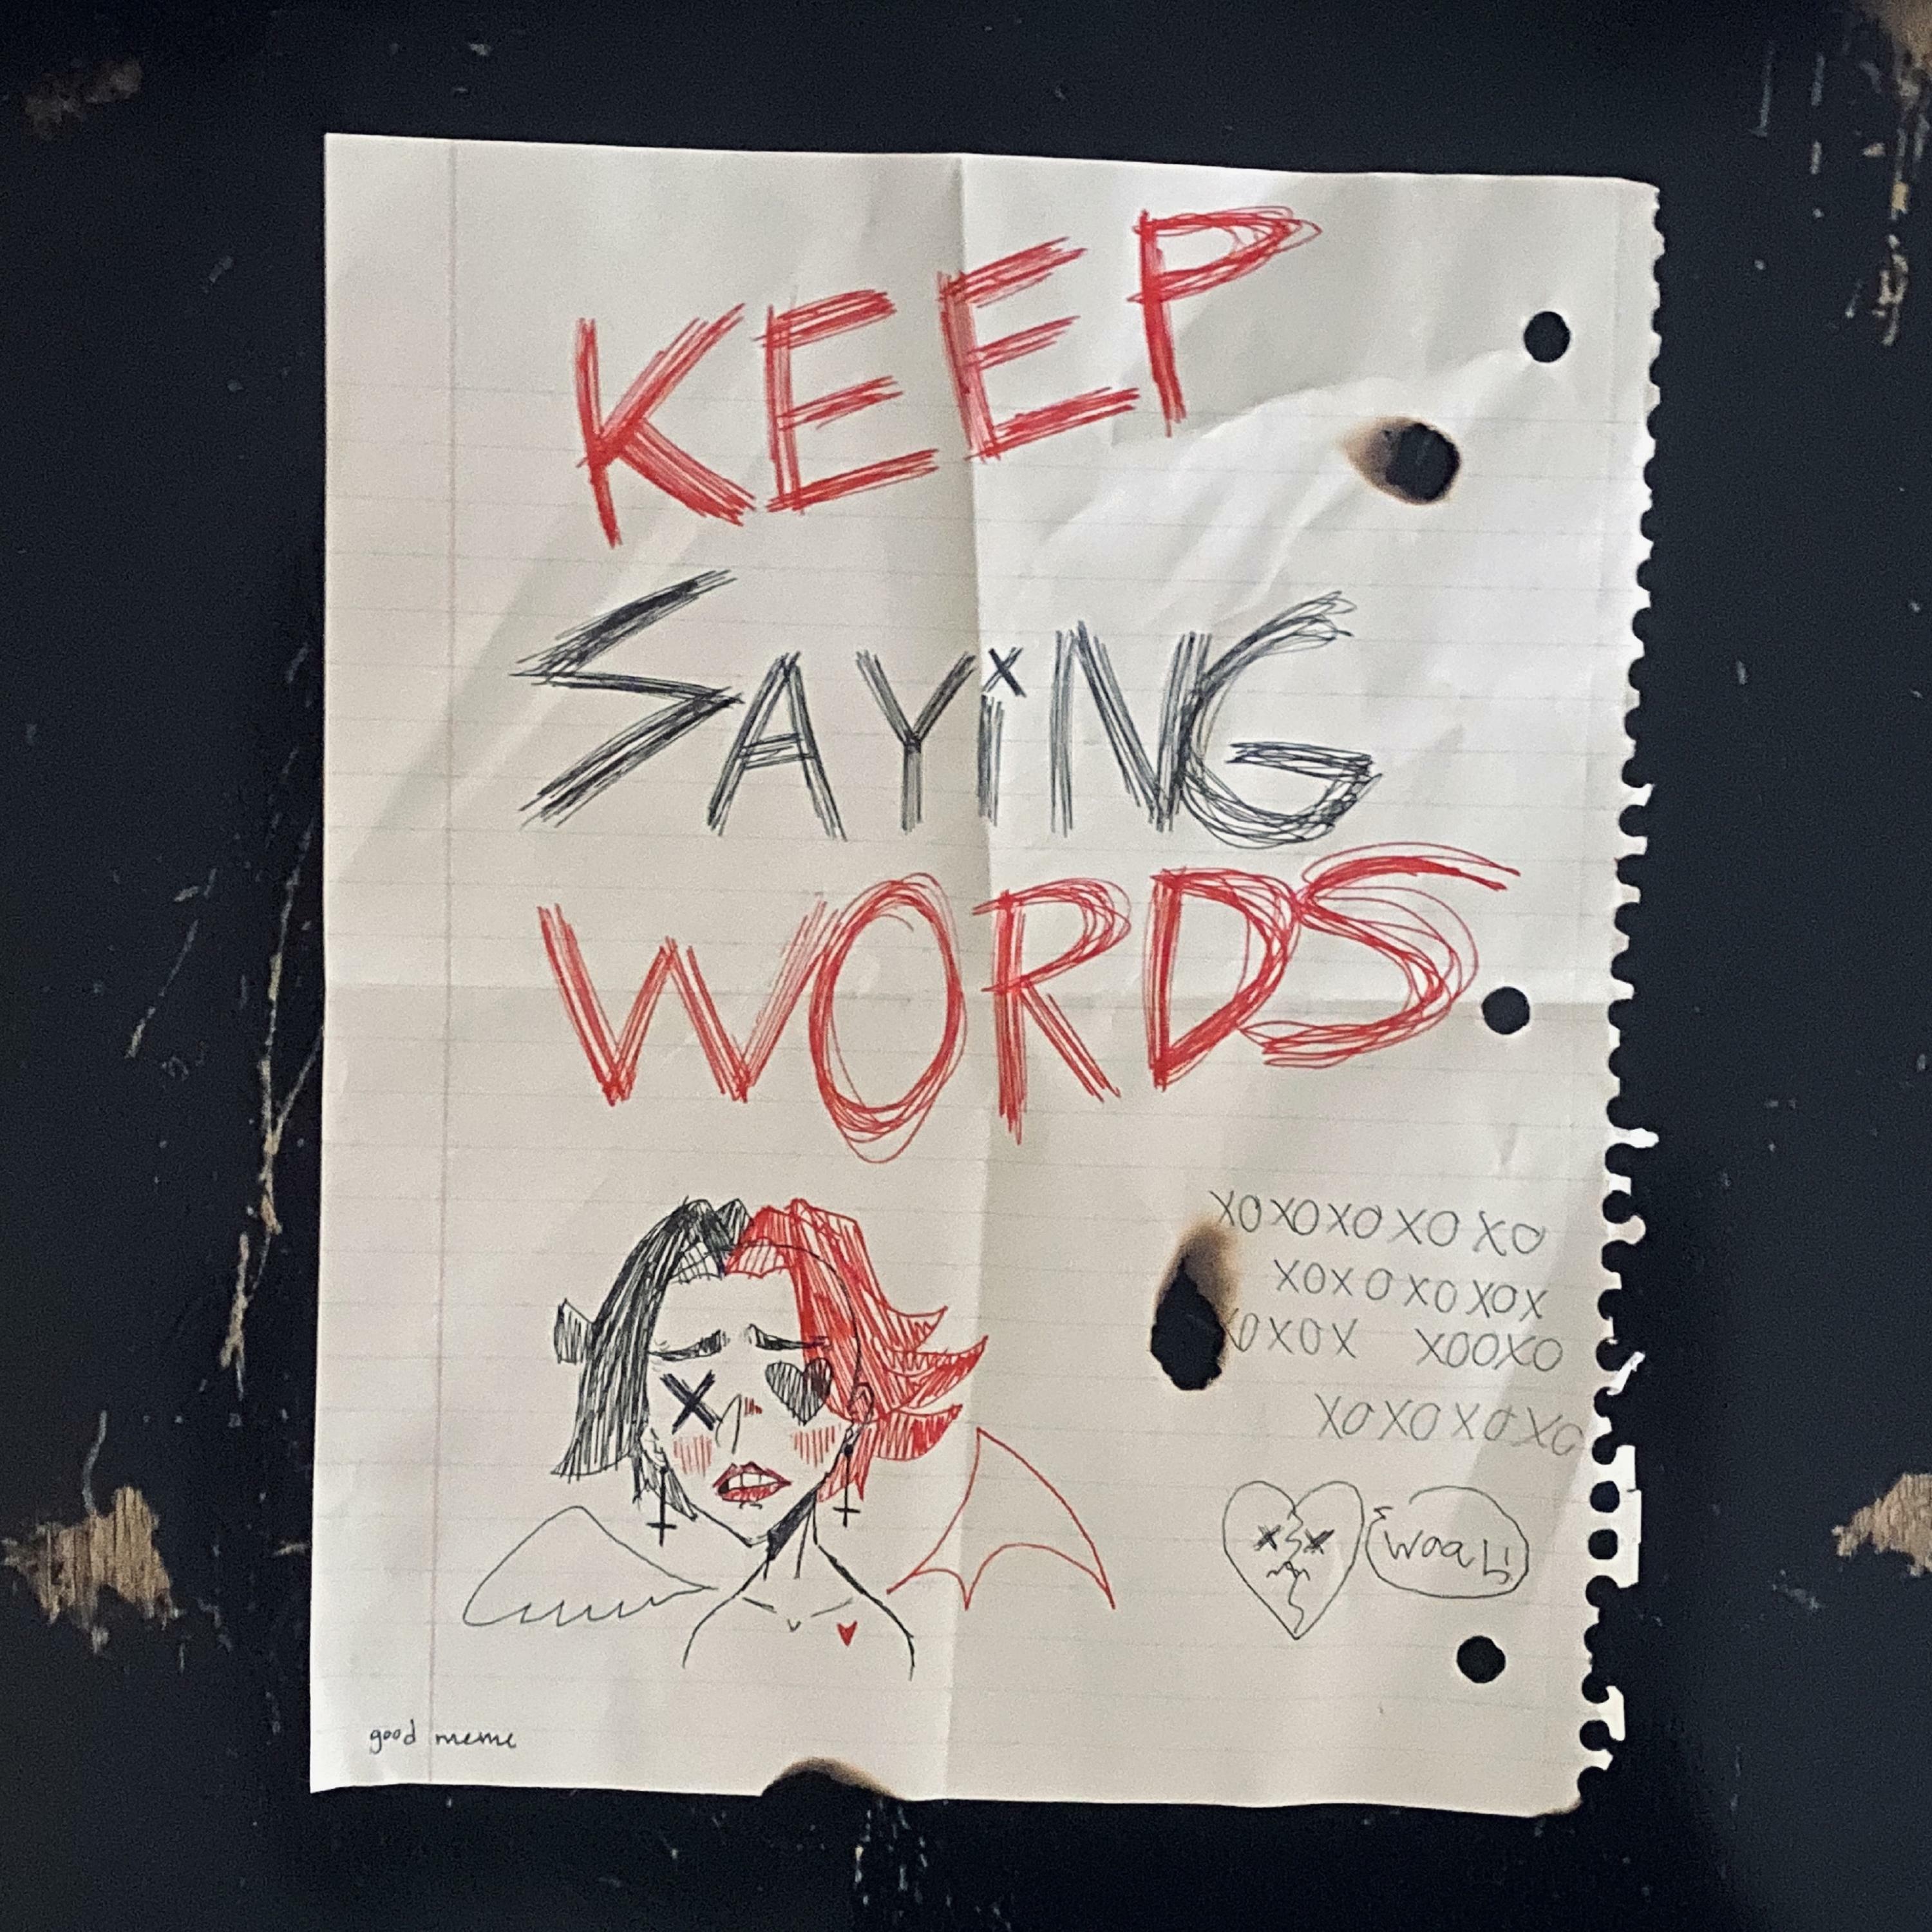 KEEP
SAYiNG
WORDS
XOXOXOXOXO
XOXOXOXOX
XOXOX XOOXO
XOXOXOXO
woah!
good meme